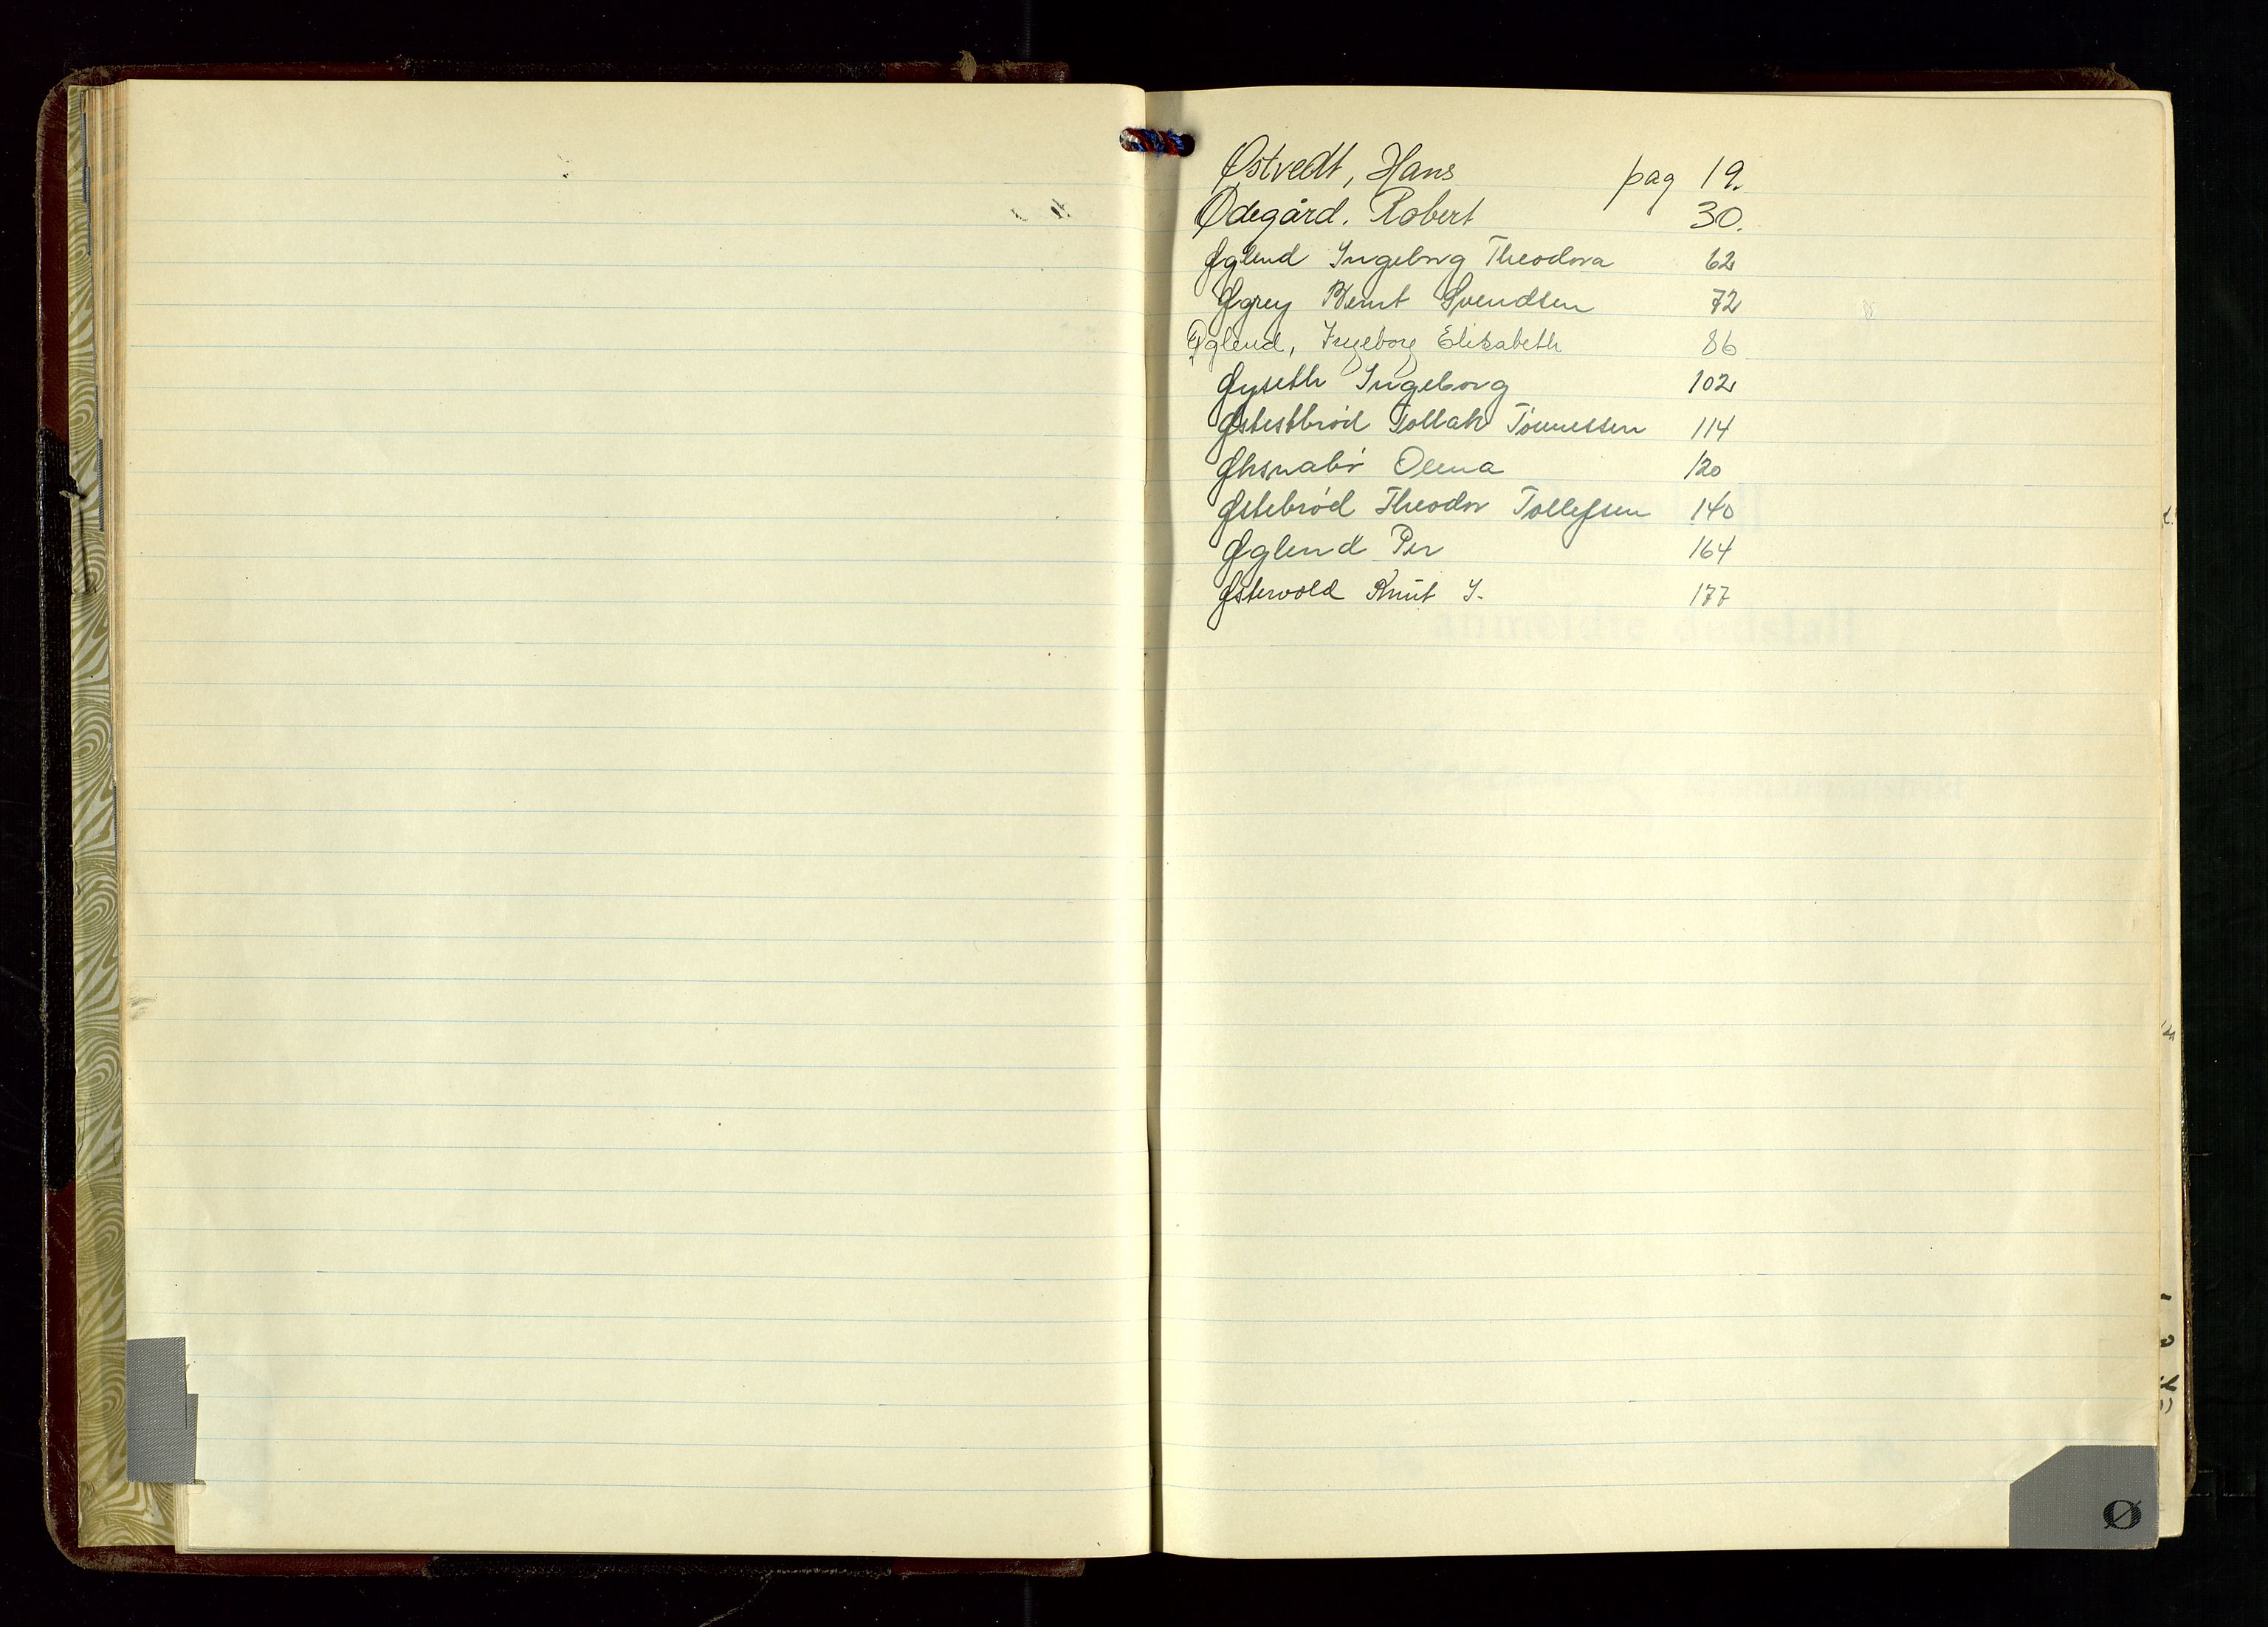 Østvedt, Hans pag 19.
Ødegård. Robert 30.
Øglend Ingeborg Theodora 62
Øgrey Bernt Svendsen 72
Øglend, Ingeborg Elisabeth 86
Øyseth Ingeborg 102
Østestbrød Tollak Tønnessen 114
Øksnabø Olena 120
Østebrød Theodor Tollefsen 140
Øglend Per 164
Østervold Knut I. 177
Ø